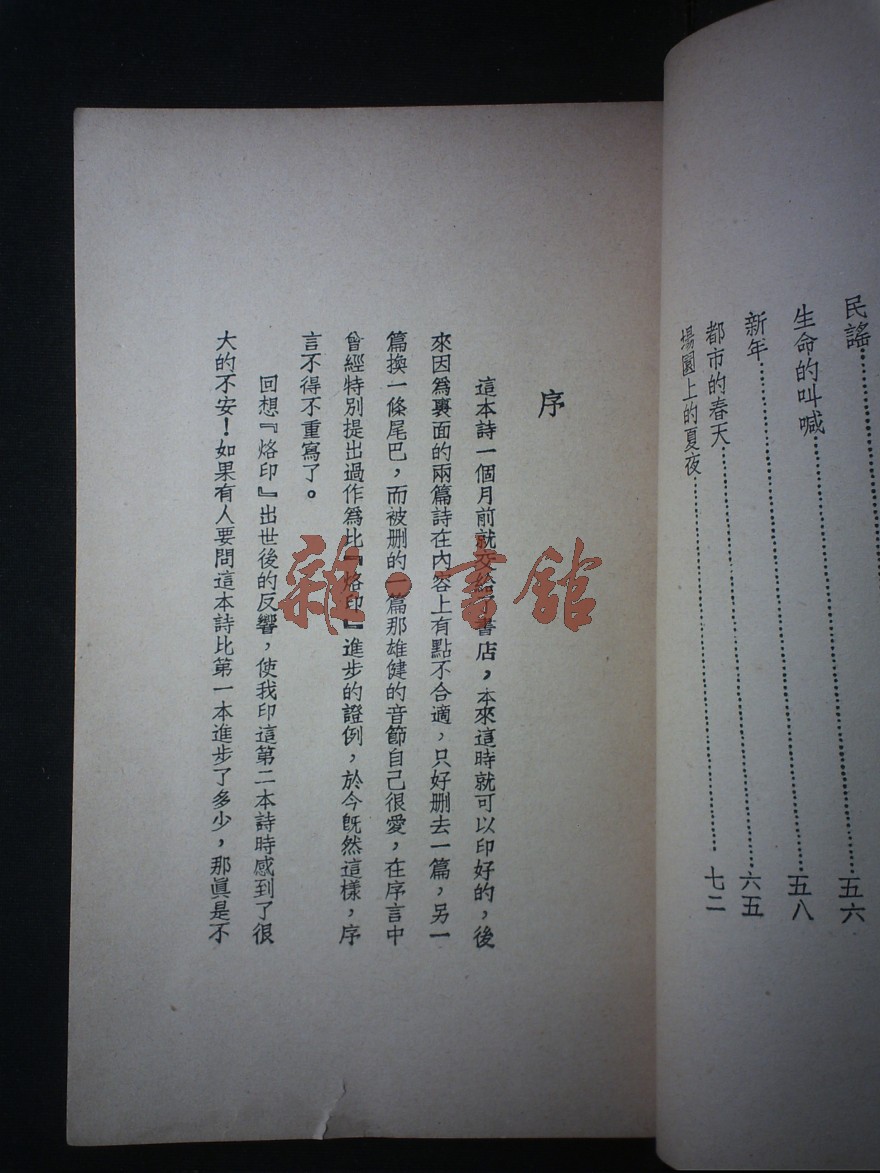 民謠……五六
生命的叫喊……五八
新年……六五
都市的春天……七二
場園上的夏夜……
序
這本詩一個月前就交給了書店，本來這時就可以印好的，後
來因爲裏面的兩篇詩在內容上有點不合適，只好删去一篇，另一
篇換一條尾巴，而被删的一篇那雄健的音節自己很愛，在序言中
曾經特別提出過作爲比『烙印』進步的證例，於今旣然這樣，序
言不得不重寫了。
回想『烙印』出世後的反響，使我印這第二本詩時感到了很
大的不安！如果有人要問這本詩比第一本進步了多少，那眞是不
雜·書館